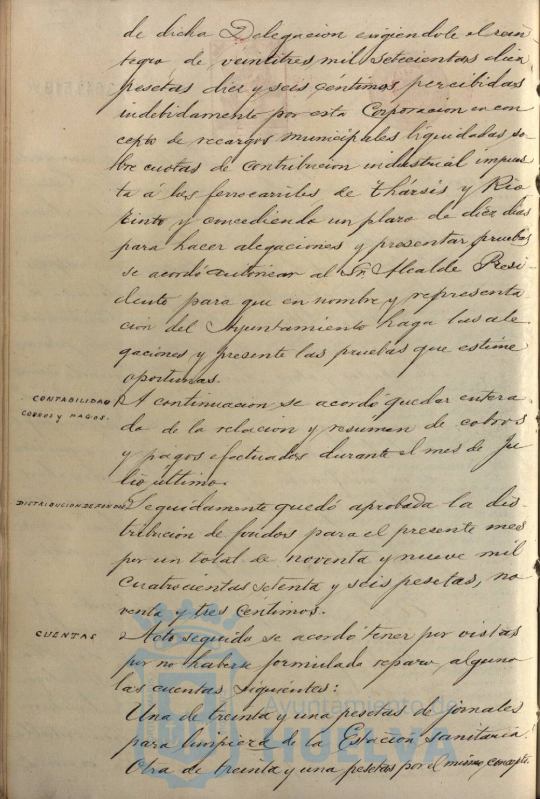 de dicha Delegacion exigiendole el rein-
tegro de veintitres mil setecientas diez
pesetas diez y seis céntimos percibidas
indebidamente por esta Corporacion en con-
cepto de recargos municipales liquidadas so-
bre cuotas de contribucion industrial impues-
ta á los ferrocarriles de Thársis y Rio
Tinto y concediendo un plazo de diez dias
para hacer alegaciones y presentar pruebas
se acordó autorizar al Sr. Alcalde Presi-
dente para que en nombre y representa-
cion del Ayuntamiento haga las ale-
gaciones y presente las pruebas que estime
oportunas.
CONTABILIDAD
COBROS Y PAGOS.
A continuacion se acordó quedar entera-
do de la relacion y resúmen de cobros
y pagos efectuados durante el mes de Ju-
lio último.
DISTRIBUCION DE FONDOS
Seguidamente quedó aprobada la dis-
tribucion de fondos para el presente mes
por un total de noventa y nueve mil
cuatrocientas setenta y seis pesetas, no-
venta y tres céntimos.
CUENTAS
Acto seguido se acordó tener por vistas
por no haberse formulado reparo alguno
las cuentas siguientes:
Una de treinta y una pesetas de jornales
para limpieza de la Estacion sanitaria.
Otra de treinta y una pesetas por el mismo concepto.
Ayuntamiento de
HUELVA